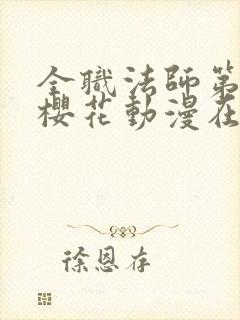 全職法師第
櫻花動漫在
徐恩存